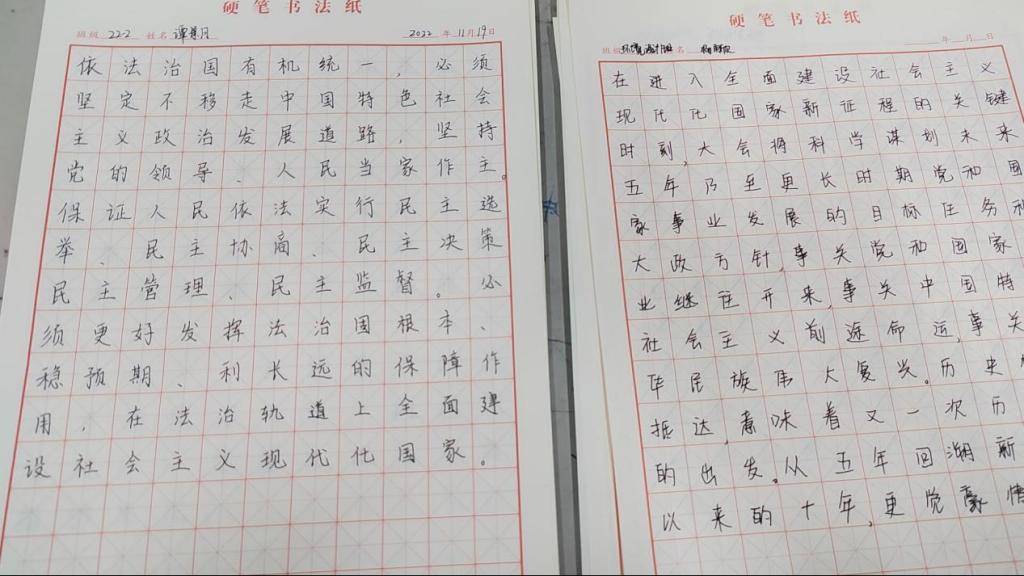 硬笔书法纸
班级 22-2 姓名 谭 月 2022年11月19日
依法治国有机统一，必须
坚定不移走中国特色社会
主义政治发展道路，坚持
党的领导、人民当家作主。
保证人民依法实行民主选
举、民主协商、民主决策
民主管理、民主监督。必
须更好发挥法治国根本、
稳预期、利长远的保障作
用，在法治轨道上全面建
设社会主义现代化国家。
硬笔书法纸
班级 环境设计 名 年 月 日
在进入全面建设社会主义
现代化国家新征程的关键
时刻，大会将科学谋划未来
五年乃至更长时期党和国
家事业发展的目标任务和
大政方针，事关党和国家
业继往开来，事关中国特
社会主义前途命运，事关
华民族伟大复兴。历史
抵达，意味着又一次历
的出发。从五年回溯新
以来的十年，更党豪情